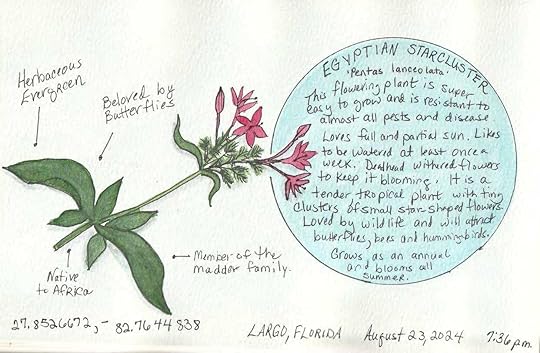 Herbaceous
Evergreen
Beloved by
Butterflies
EGYPTIAN STARCLUSTER
'Pentas lanceolata'
This flowering plant is super
easy to grow and is resistant to
almost all pests and disease.
Loves full and partial sun. Likes
to be watered at least once a
week. Deadhead withered flowers
to keep it blooming. It is a
tender tropical plant with tiny
clusters of small star shaped flowers.
Loved by wildlife and will attract
butterflies, bees and hummingbirds.
Grows as an annual
and blooms all
summer.
Member of the
madder family.
Native
to Africa
27.8526672, - 82.7644838
LARGO, FLORIDA August 23, 2024 7:36 pm.